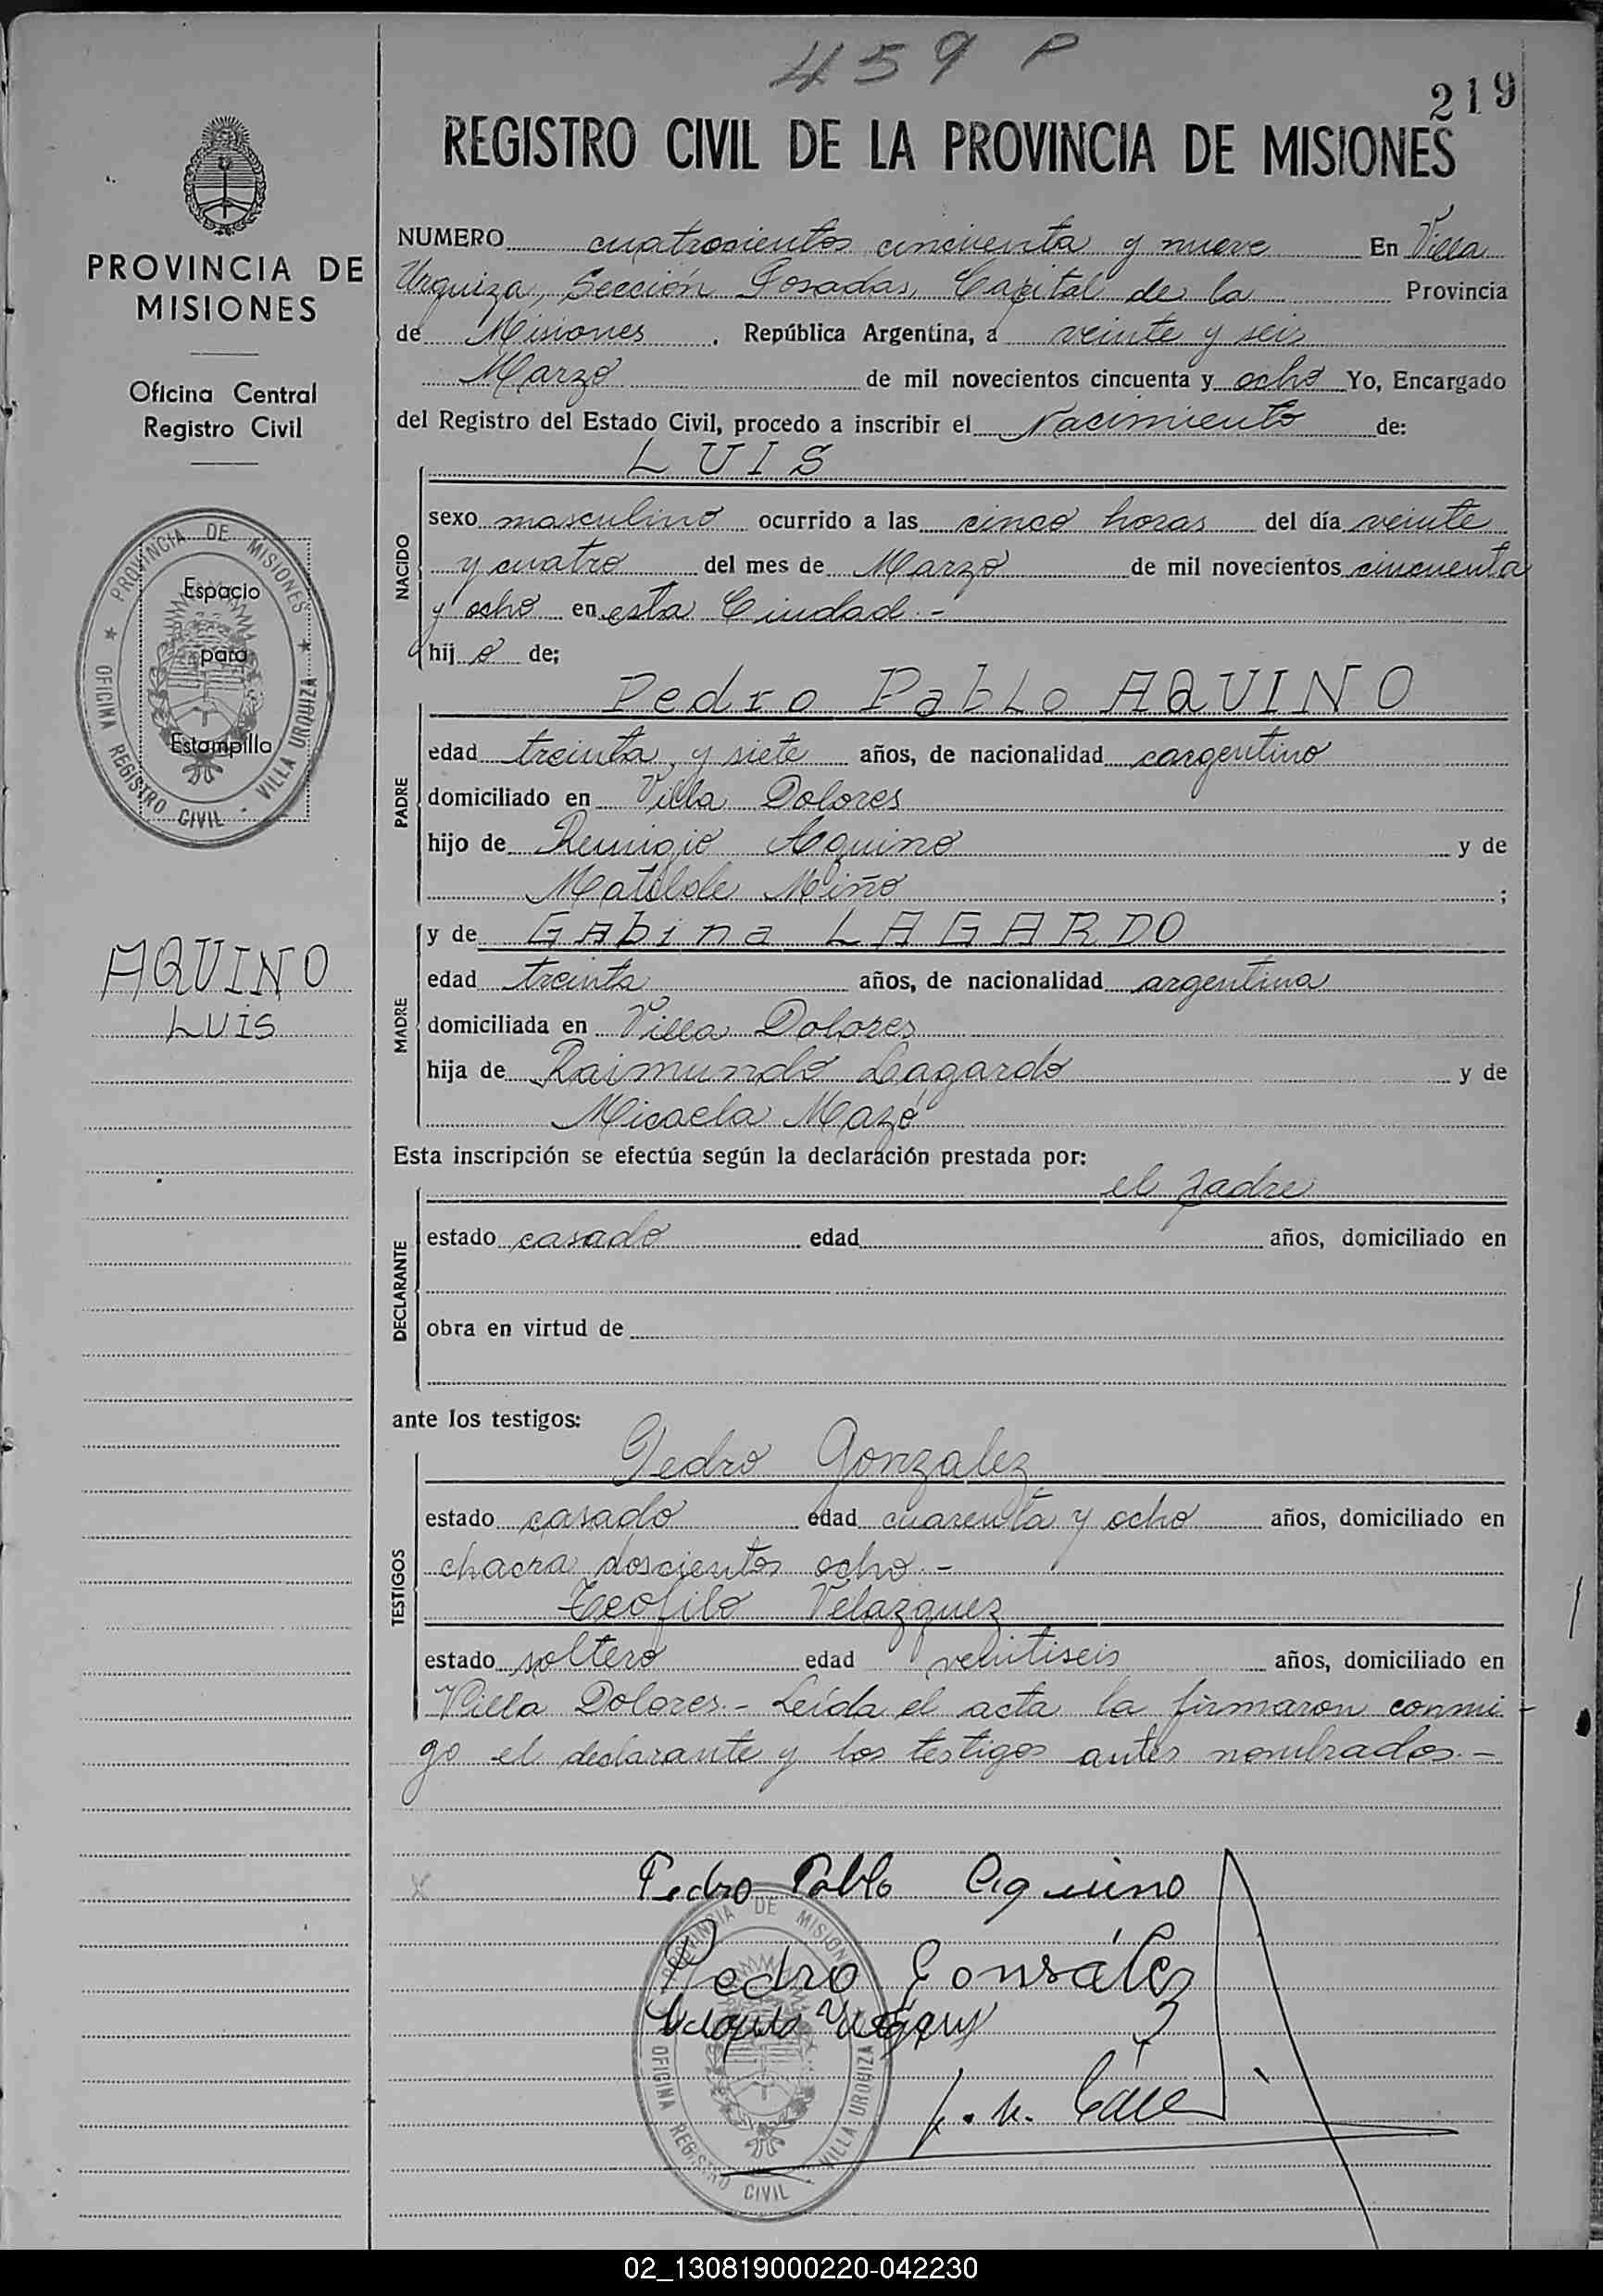 459 P
219
REGISTRO CIVIL DE LA PROVINCIA DE MISIONES
PROVINCIA DE
MISIONES
Oficina Central
Registro Civil
PROVINCIA DE MISIONES
OFICINA REGISTRO CIVIL - VILLA URQUIZA
Espacio
para
Estampilla
AQUINO
LUIS
NUMERO cuatrosientos cincuenta y nueve En Villa
Urquiza, Sección Posadas, Capital de la Provincia
de Misiones. República Argentina, a veinte y seis
Marzo de mil novecientos cincuenta y ocho Yo, Encargado
del Registro del Estado Civil, procedo a inscribir el Nacimiento de:
LUIS
NACIDO
sexo masculino ocurrido a las cinco horas del día veinte
y cuatro del mes de Marzo de mil novecientos cincuenta
y ocho en esta Ciudad.-
hijo de:
Pedro Pablo AQUINO
PADRE
edad treinta y siete años, de nacionalidad argentino
domiciliado en Villa Dolores
hijo de Remigio Aquino y de
Matilde Miño;
y de Gabina LAGARDO
MADRE
edad treinta años, de nacionalidad argentina
domiciliada en Villa Dolores
hija de Raimundo Lagardo y de
Micaela Mazó
Esta inscripción se efectúa según la declaración prestada por:
el padre
DECLARANTE
estado casado edad años, domiciliado en
obra en virtud de
ante los testigos:
Pedro Gonzalez
TESTIGOS
estado casado edad cuarenta y ocho años, domiciliado en
chacra doscientos ocho.-
Teofilo Velazquez
estado soltero edad veintiseis años, domiciliado en
Villa Dolores.- Leída el acta la firmaron conmi-
go el declarante y los testigos antes nombrados.-
Pedro Pablo Aquino
Pedro Gonsález
PROVINCIA DE MISIONES
OFICINA REGISTRO CIVIL - VILLA URQUIZA
02_130819000220-042230